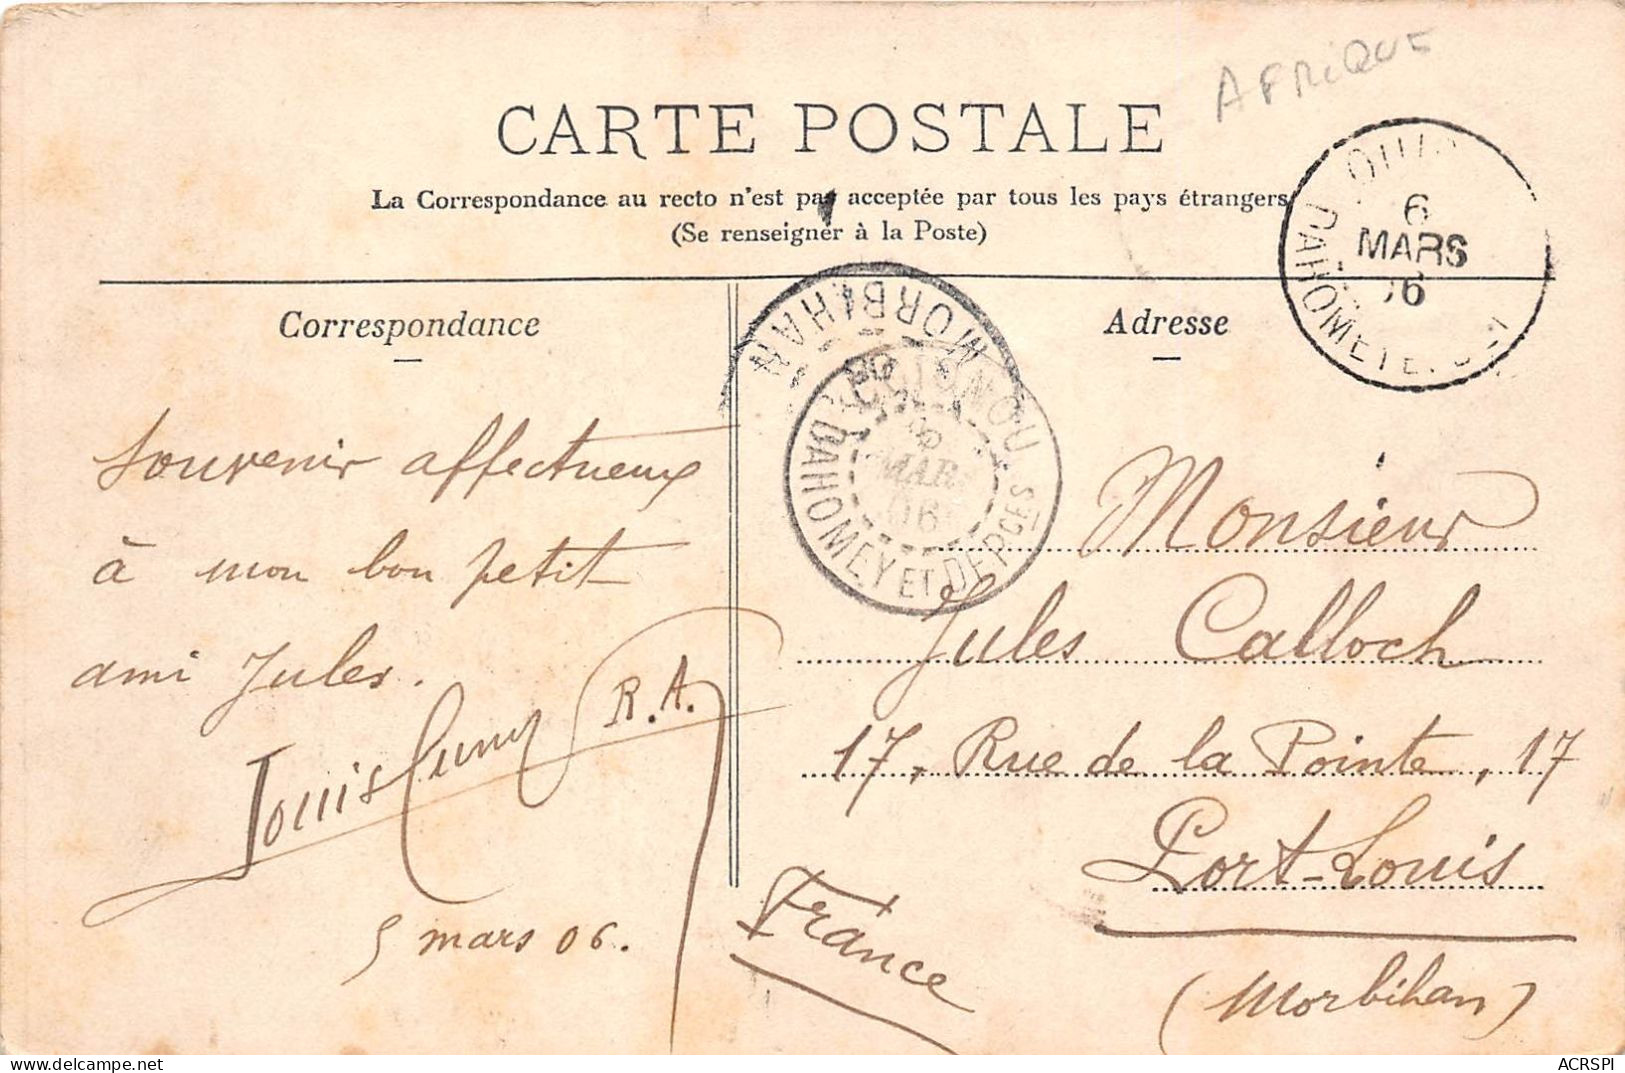 AFRIQUE
CARTE POSTALE
La Correspondance au recto n'est pas acceptée par tous les pays étrangers
(Se renseigner à la Poste)
6
MARS
06
DAHOMEY ET
Correspondance
Adresse
MORBIHAN
COTONOU
MARS
06
DAHOMEY ET DEPCES
Souvenir affectueux
à mon bon petit
ami Jules.
Louis Cuny R.A.
5 mars 06.
Monsieur
Jules Calloch
17, Rue de la Pointe, 17
Port-Louis
(Morbihan)
France
ACRSPI